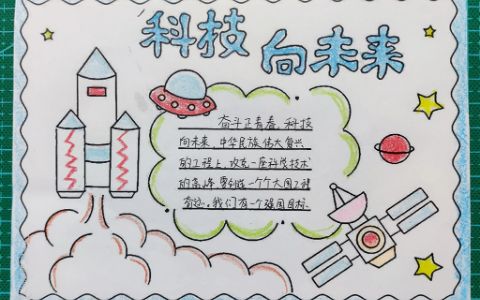 科技向未来
奋斗正青春,科技
向未来,中华民族伟大复兴
的工程上,攻克一座科学技术
的高峰,要创造一个个大国工程
奇迹,我们有一个强国目标.